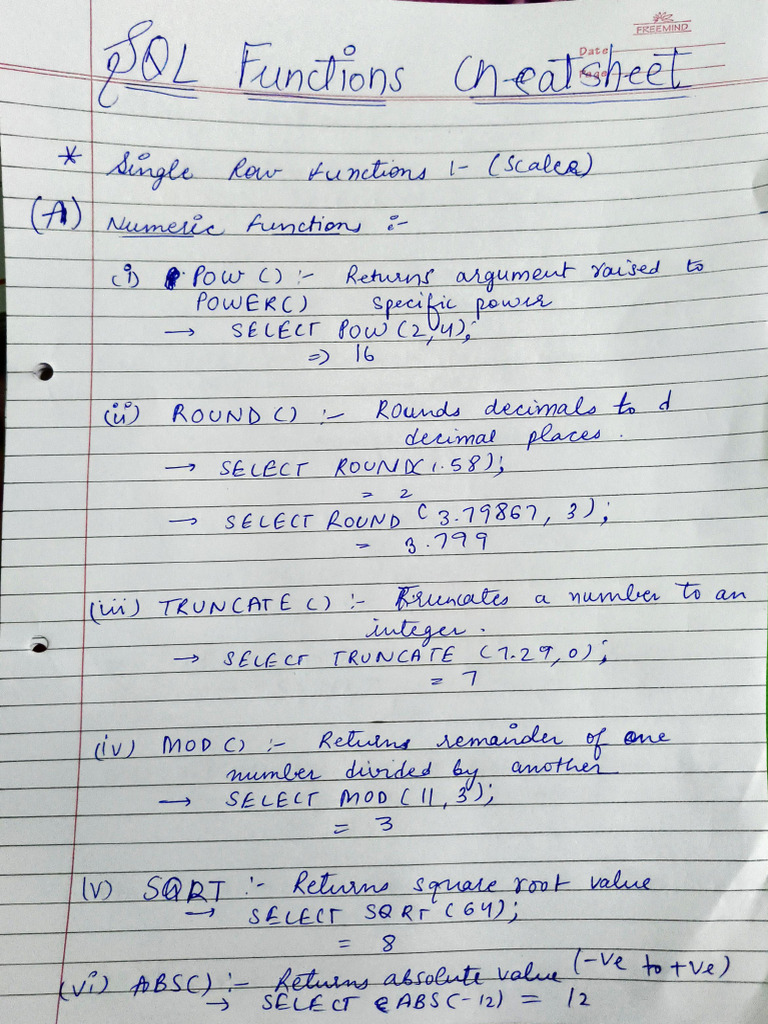 FREEMIND
Date
Page
SQL Functions Cheatsheet
* Single Row Functions :- (Scaler)
(A) Numeric Functions :-
(i) POW () :- Returns argument raised to
POWER() specific power
→ SELECT POW (2,4);
=> 16
(ii) ROUND () :- Rounds decimals to d
decimal places.
→ SELECT ROUND(1.58);
= 2
→ SELECT ROUND (3.79867, 3);
= 3.799
(iii) TRUNCATE () :- Truncates a number to an
integer.
→ SELECT TRUNCATE (7.29,0);
= 7
(iv) MOD () :- Returns remainder of one
number divided by another
→ SELECT MOD (11,3);
= 3
(v) SQRT :- Returns square root value
→ SELECT SQRT (64);
= 8
(vi) ABS() :- Returns absolute value (-ve to +ve)
→ SELECT ABS(-12) = 12